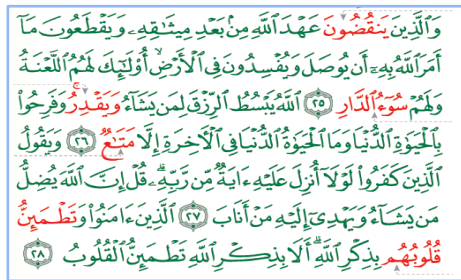 وَالَّذِينَ يَنقُضُونَ عَهْدَ اللَّهِ مِنۢ بَعْدِ مِيثَٰقِهِۦ وَيَقْطَعُونَ مَآ
أَمَرَ اللَّهُ بِهِۦٓ أَن يُوصَلَ وَيُفْسِدُونَ فِي الْأَرْضِ ۙ أُوْلَٰٓئِكَ لَهُمُ اللَّعْنَةُ
وَلَهُمْ سُوٓءُ الدَّارِ ٢٥ اللَّهُ يَبْسُطُ الرِّزْقَ لِمَن يَشَآءُ وَيَقْدِرُ ۚ وَفَرِحُوا۟
بِالْحَيَوٰةِ الدُّنْيَا وَمَا الْحَيَوٰةُ الدُّنْيَا فِي الْأٓخِرَةِ إِلَّا مَتَٰعٌ ٢٦ وَيَقُولُ
الَّذِينَ كَفَرُوا۟ لَوْلَآ أُنزِلَ عَلَيْهِ ءَايَةٌ مِّن رَّبِّهِۦ ۗ قُلْ إِنَّ اللَّهَ يُضِلُّ
مَن يَشَآءُ وَيَهْدِيٓ إِلَيْهِ مَنْ أَنَابَ ٢٧ الَّذِينَ ءَامَنُوا۟ وَتَطْمَئِنُّ
قُلُوبُهُم بِذِكْرِ اللَّهِ ۗ أَلَا بِذِكْرِ اللَّهِ تَطْمَئِنُّ الْقُلُوبُ ٢٨